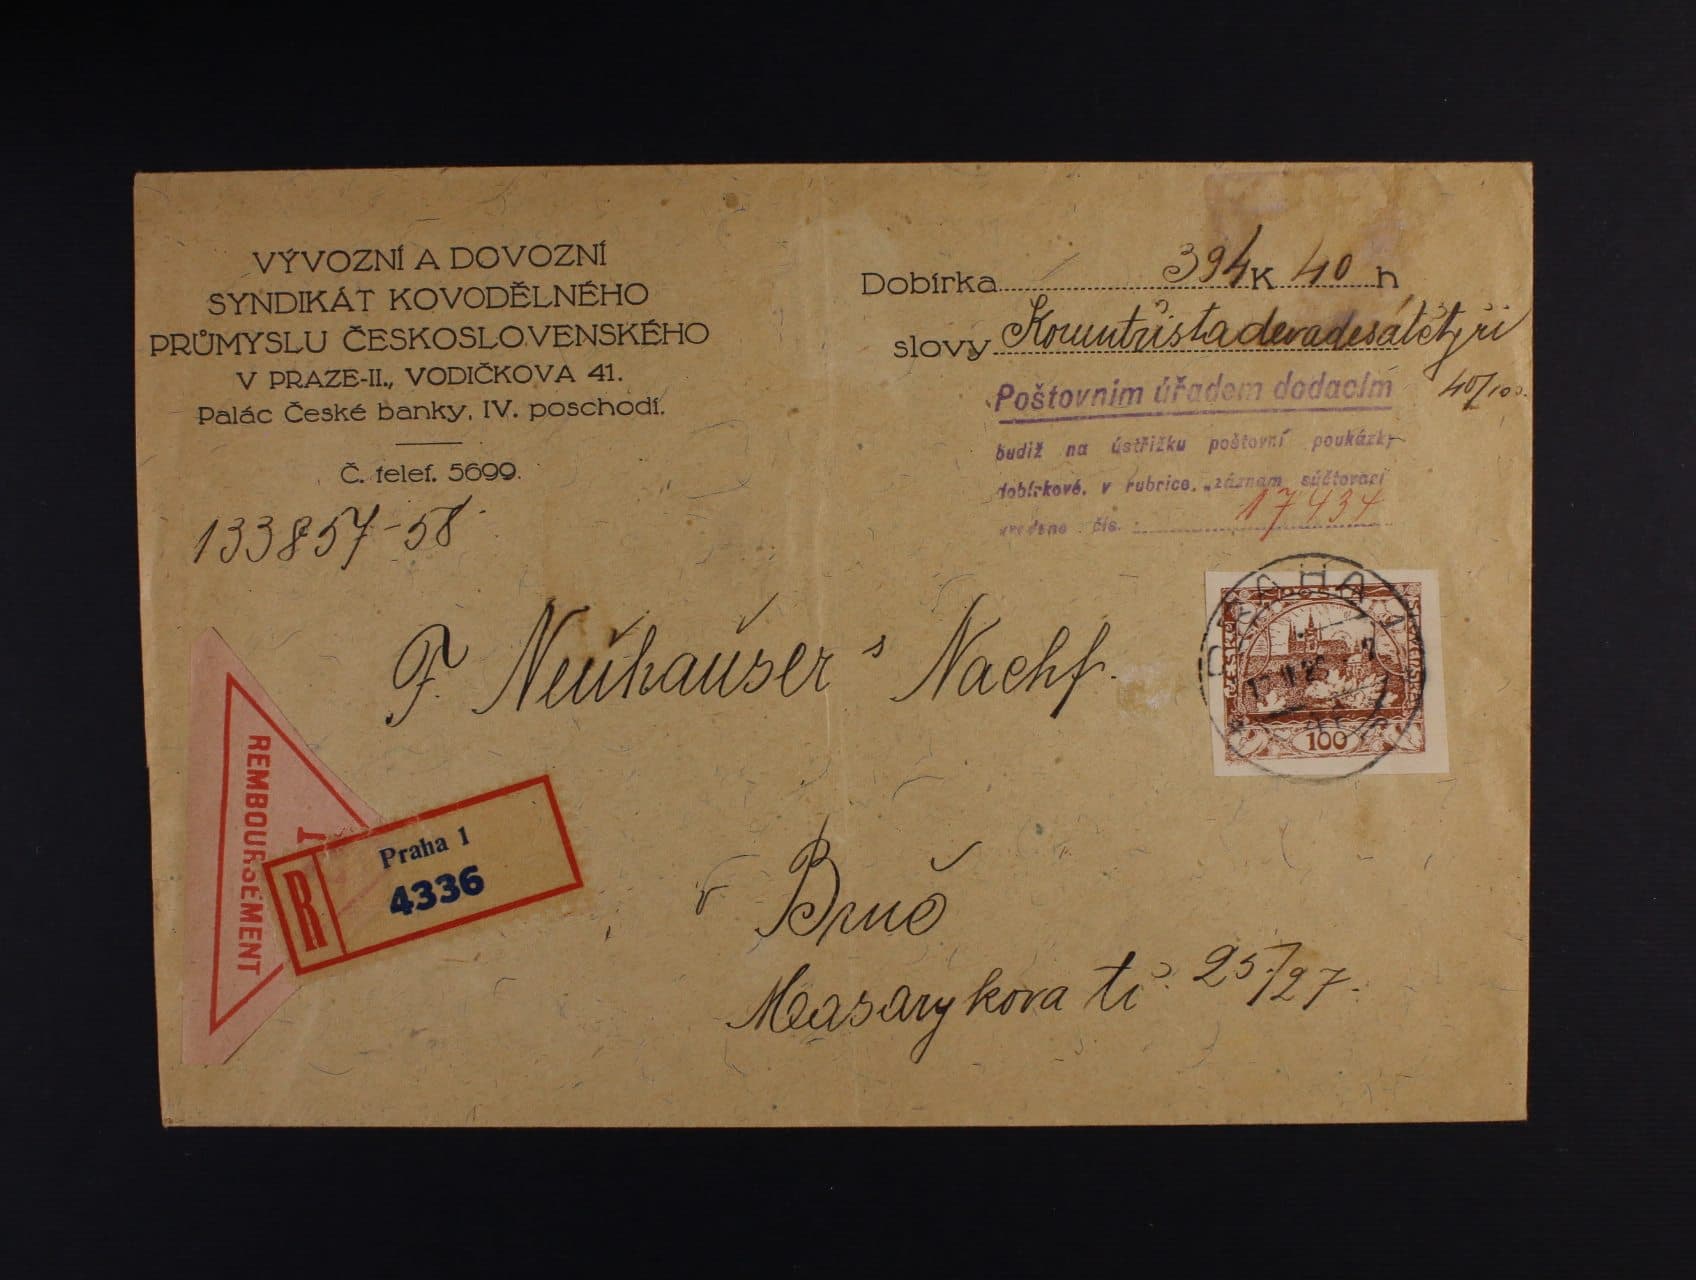 VÝVOZNÍ A DOVOZNÍ
SYNDIKÁT KOVODĚLNÉHO
PRŮMYSLU ČESKOSLOVENSKÉHO
V PRAZE-II., VODIČKOVA 41.
Palác České banky, IV. poschodí.
Č. telef. 5699.
133857-58
Dobírka 394 K 40 h
slovy Koruntřistadevadesátčtyři
40/100
Poštovním úřadem dodacím
budiž na ústřižku poštovní poukázky
dobírkové, v rubrice, „záznam súčtovací
uvedeno čís. 17434
PRAHA 1
POSTA
ČESKO
100
F. Neuhauser's Nachf.
REMBOURSEMENT
R
Praha 1
4336
v Brně
Masarykova tř. 25/27.